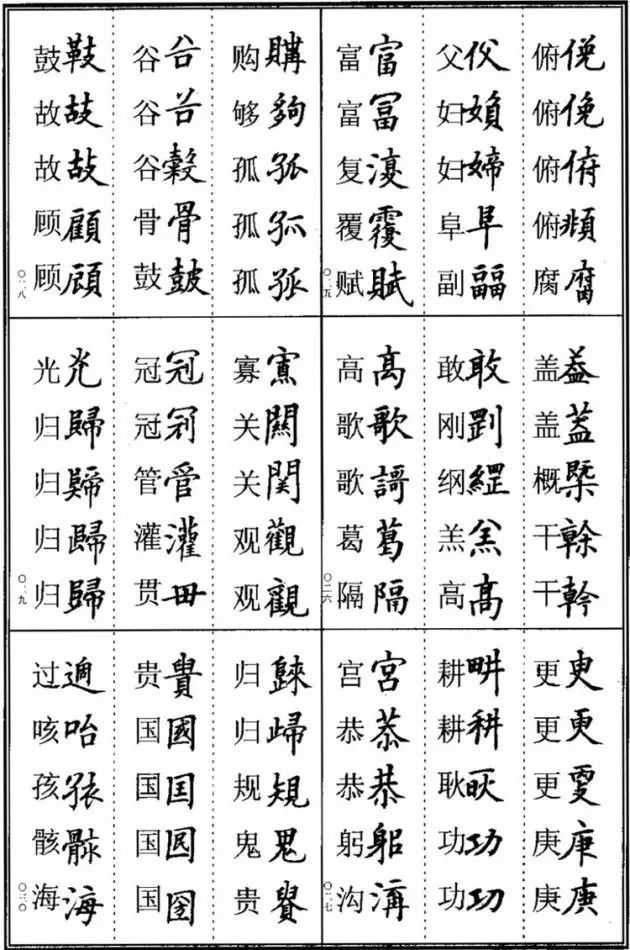 俯俛
俯俛
俯俯
俯頫
腐腐
父
妇媍
妇婦
阜阜
副疈
富富
富冨
复復
覆覆
赋賦
〇二五
盖葢
盖蓋
概槩
干榦
干幹
敢敢
刚
纲
羔羔
高髙
高髙
歌歌
歌謌
葛葛
隔隔
〇二六
更
更更
更
庚庚
庚庚
耕畊
耕耕
耿耿
功功
功㓛
宫宮
恭恭
恭恭
躬躳
沟溝
〇二七
购購
够夠
孤孤
孤孤
孤孤
谷谷
谷
谷榖
骨骨
鼓皷
鼓
故故
故故
顾顧
顾
〇二八
寡
关關
关関
观觀
观觀
冠冠
冠
管管
灌灌
贯毌
光光
归歸
归
归歸
归歸
〇二九
归
归
规規
鬼鬼
贵
贵貴
国國
国囯
国
国圀
过
咳
孩孩
骸骸
海海
〇三〇